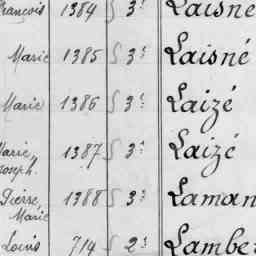 François 1384 § 3e Laisné
Marie 1385 § 3e Laisné
Marie 1386 § 3e Laizé
Marie Joseph. 1387 § 3e Laizé
Pierre Marie 1388 § 3e Laman
Louis 714 § 2e Lamber